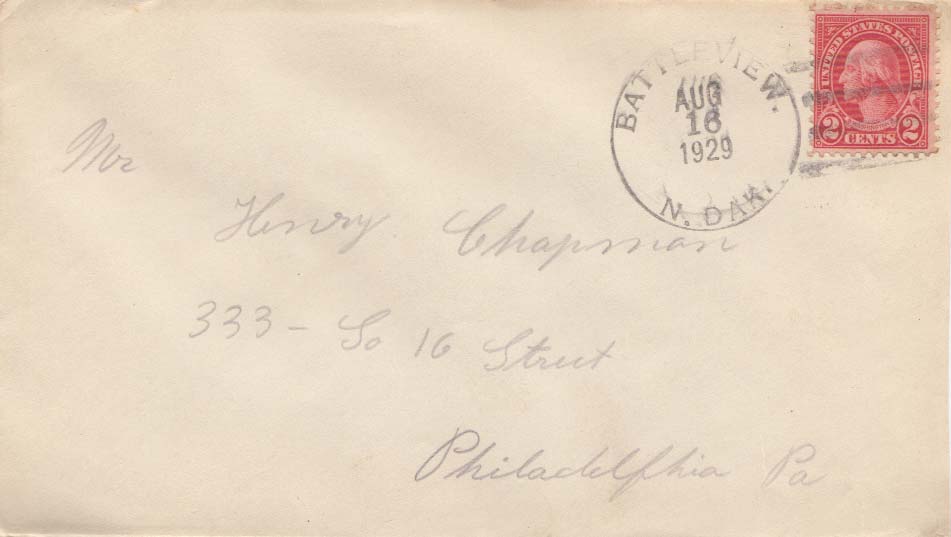 UNITED STATES POSTAGE
2 CENTS 2
BATTLEVIEW.
AUG
16
1929
N. DAK.
Mr
Henry Chapman
333 – So 16 Street
Philadelphia Pa